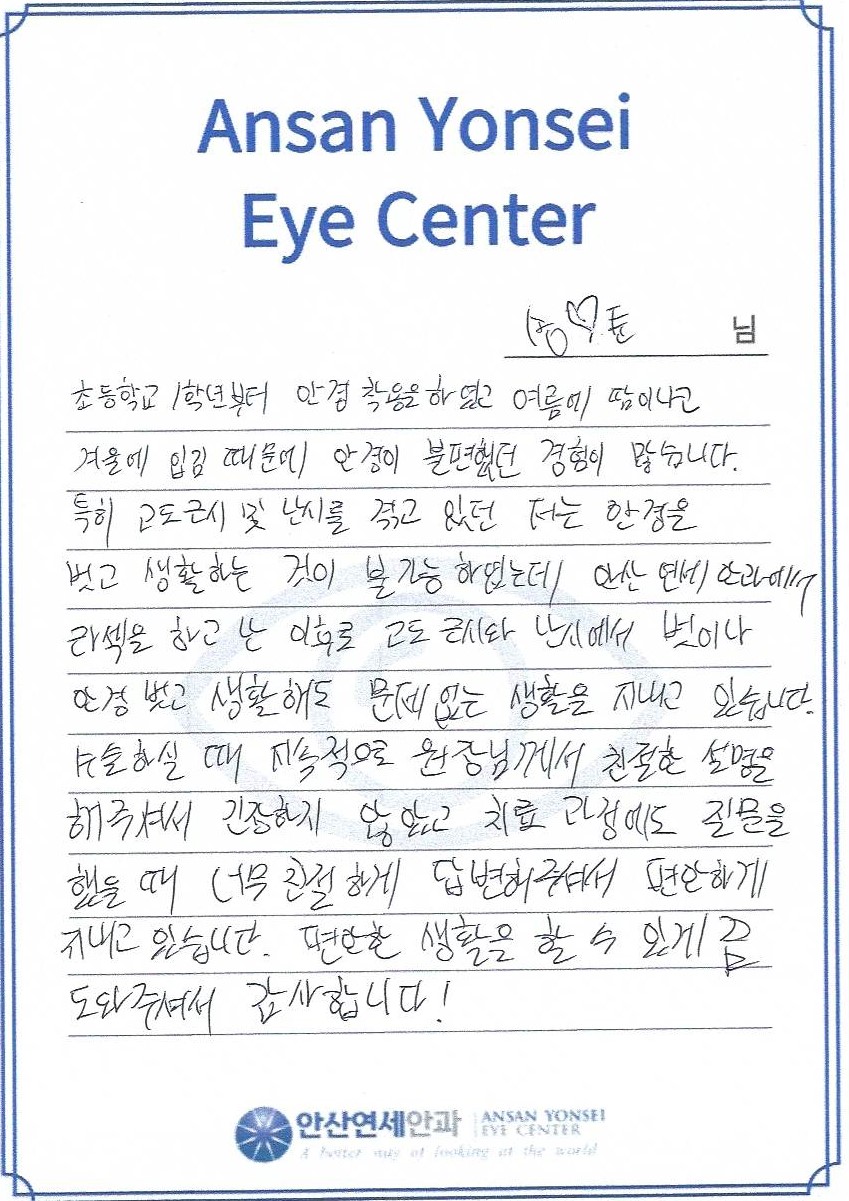 Ansan Yonsei
Eye Center
송♡튼 님
초등학교 1학년부터 안경 착용을 하였고 여름에 땀이나고
겨울에 입김 때문에 안경이 불편했던 경험이 많습니다.
특히 고도근시 및 난시를 겪고 있던 저는 안경을
벗고 생활하는 것이 불가능 하였는데 안산 연세 안과에서
라섹을 하고 난 이후로 고도 근시와 난시에서 벗어나
안경 벗고 생활해도 문제 없는 생활을 지내고 있습니다.
수술하실 때 지속적으로 원장님께서 친절한 설명을
해주셔서 긴장하지 않았고 치료 과정에도 질문을
했을 때 너무 친절하게 답변해주셔서 편안하게
지내고 있습니다. 편안한 생활을 할 수 있게끔
도와주셔서 감사합니다!
안산연세안과 ANSAN YONSEI
EYE CENTER
A better way of looking at the world